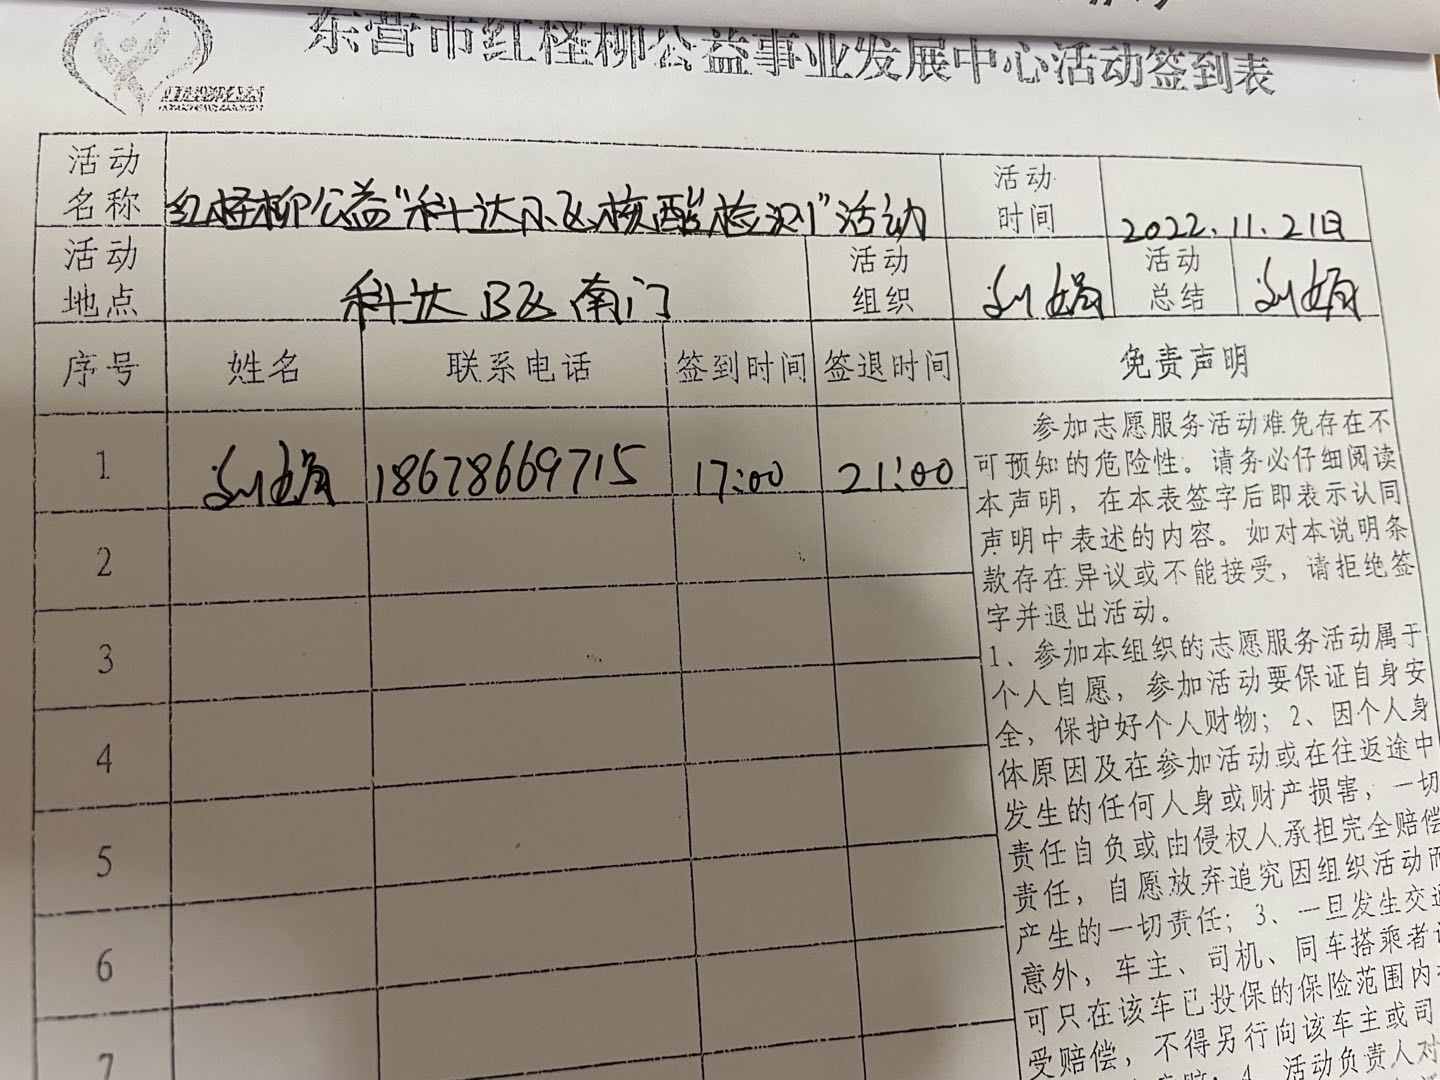 东营市红柽柳公益事业发展中心活动签到表
活动名称 红柽柳公益“科达小区核酸检测”活动 活动时间 2022.11.21日
活动地点 科达B区南门 活动组织 刘娟 活动总结 刘娟
序号 姓名 联系电话 签到时间 签退时间 免责声明
1 刘娟 18678669715 17:00 21:00
2
3
4
5
6
7
参加志愿服务活动难免存在不
可预知的危险性。请务必仔细阅读
本声明，在本表签字后即表示认同
声明中表述的内容。如对本说明条
款存在异议或不能接受，请拒绝签
字并退出活动。
1、参加本组织的志愿服务活动属于
个人自愿，参加活动要保证自身安
全，保护好个人财物；2、因个人身
体原因及在参加活动或在往返途中
发生的任何人身或财产损害，一切
责任自负或由侵权人承担完全赔偿
责任，自愿放弃追究因组织活动而
产生的一切责任；3、一旦发生交通
意外，车主、司机、同车搭乘者
可只在该车已投保的保险范围内
受赔偿，不得另行向该车主或司
4、活动负责人对